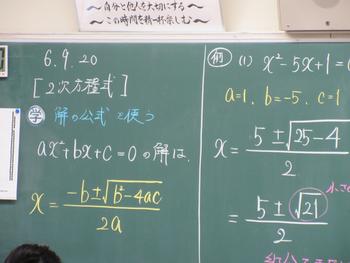 〜自分と他人を大切にする〜
〜この時間を精一杯楽しむ〜
6.9.20
[2次方程式]
学 解の公式を使う
ax²+bx+c=0の解は、
x = (-b±√(b²-4ac))/2a
例 (1) x²-5x+1=0
a=1、b=-5、c=1
x = (5±√(25-4))/2
= (5±√21)/2